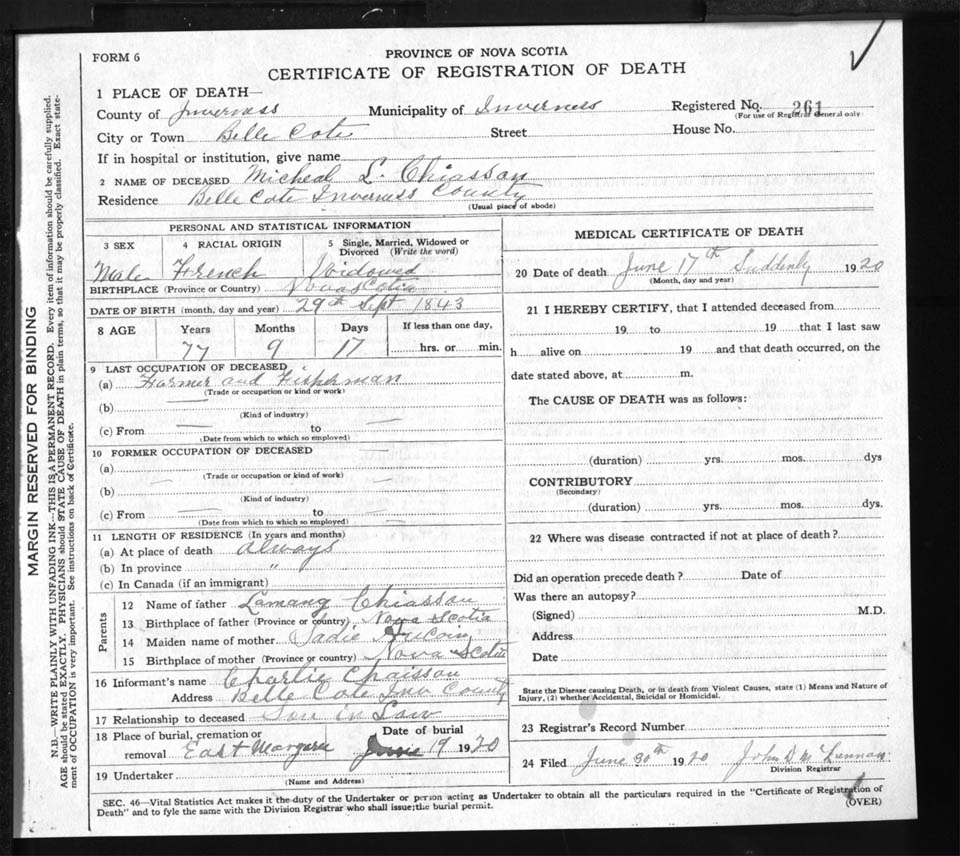 FORM 6
PROVINCE OF NOVA SCOTIA
CERTIFICATE OF REGISTRATION OF DEATH
1 PLACE OF DEATH—
County of Inverness Municipality of Inverness Registered No. 261
(For use of Registrar General only)
City or Town Belle Cote Street House No.
If in hospital or institution, give name
2 NAME OF DECEASED Micheal L. Chiasson
Residence Belle Cote Inverness County
(Usual place of abode)
PERSONAL AND STATISTICAL INFORMATION
3 SEX 4 RACIAL ORIGIN 5 Single, Married, Widowed or Divorced (Write the word)
Male French Widowed
BIRTHPLACE (Province or Country) Nova Scotia
DATE OF BIRTH (month, day and year) 29th Sept 1843
8 AGE Years Months Days If less than one day,
77 9 17 hrs. or min.
9 LAST OCCUPATION OF DECEASED
(a) Farmer and Fisherman
(Trade or occupation or kind or work)
(b)
(Kind of industry)
(c) From to
(Date from which to which so employed)
10 FORMER OCCUPATION OF DECEASED
(a)
(Trade or occupation or kind of work)
(b)
(Kind of industry)
(c) From to
(Date from which to which so employed)
11 LENGTH OF RESIDENCE (In years and months)
(a) At place of death always
(b) In province "
(c) In Canada (if an immigrant)
Parents
12 Name of father Chiasson
13 Birthplace of father (Province or country) Nova Scotia
14 Maiden name of mother Sadie AuCoin
15 Birthplace of mother (Province or country) Nova Scotia
16 Informant's name Charlie Chaisson
Address Belle Cote Inv County
17 Relationship to deceased Son in Law
18 Place of burial, cremation or Date of burial
removal East Margaree June 19 1920
19 Undertaker
(Name and Address)
MEDICAL CERTIFICATE OF DEATH
20 Date of death June 17th Suddenly 1920
(Month, day and year)
21 I HEREBY CERTIFY, that I attended deceased from
19 to 19 that I last saw
h alive on 19 and that death occurred, on the
date stated above, at m.
The CAUSE OF DEATH was as follows:
(duration) yrs. mos. dys
CONTRIBUTORY
(Secondary)
(duration) yrs. mos. dys.
22 Where was disease contracted if not at place of death?
Did an operation precede death? Date of
Was there an autopsy?
(Signed) M.D.
Address
Date
State the Disease causing Death, or in death from Violent Causes, state (1) Means and Nature of
Injury, (2) whether Accidental, Suicidal or Homicidal.
23 Registrar's Record Number
24 Filed June 30th 1920 John D McLennan
Division Registrar
SEC. 46—Vital Statistics Act makes it the duty of the Undertaker or person acting as Undertaker to obtain all the particulars required in the "Certificate of Registration of
Death" and to fyle the same with the Division Registrar who shall issue the burial permit.
(OVER)
MARGIN RESERVED FOR BINDING
N.B.—WRITE PLAINLY WITH UNFADING INK—THIS IS A PERMANENT RECORD. Every item of information should be carefully supplied.
AGE should be stated EXACTLY. PHYSICIANS should STATE CAUSE OF DEATH in plain terms, so that it may be properly classified. Exact state-
ment of OCCUPATION is very important. See instructions on back of Certificate.